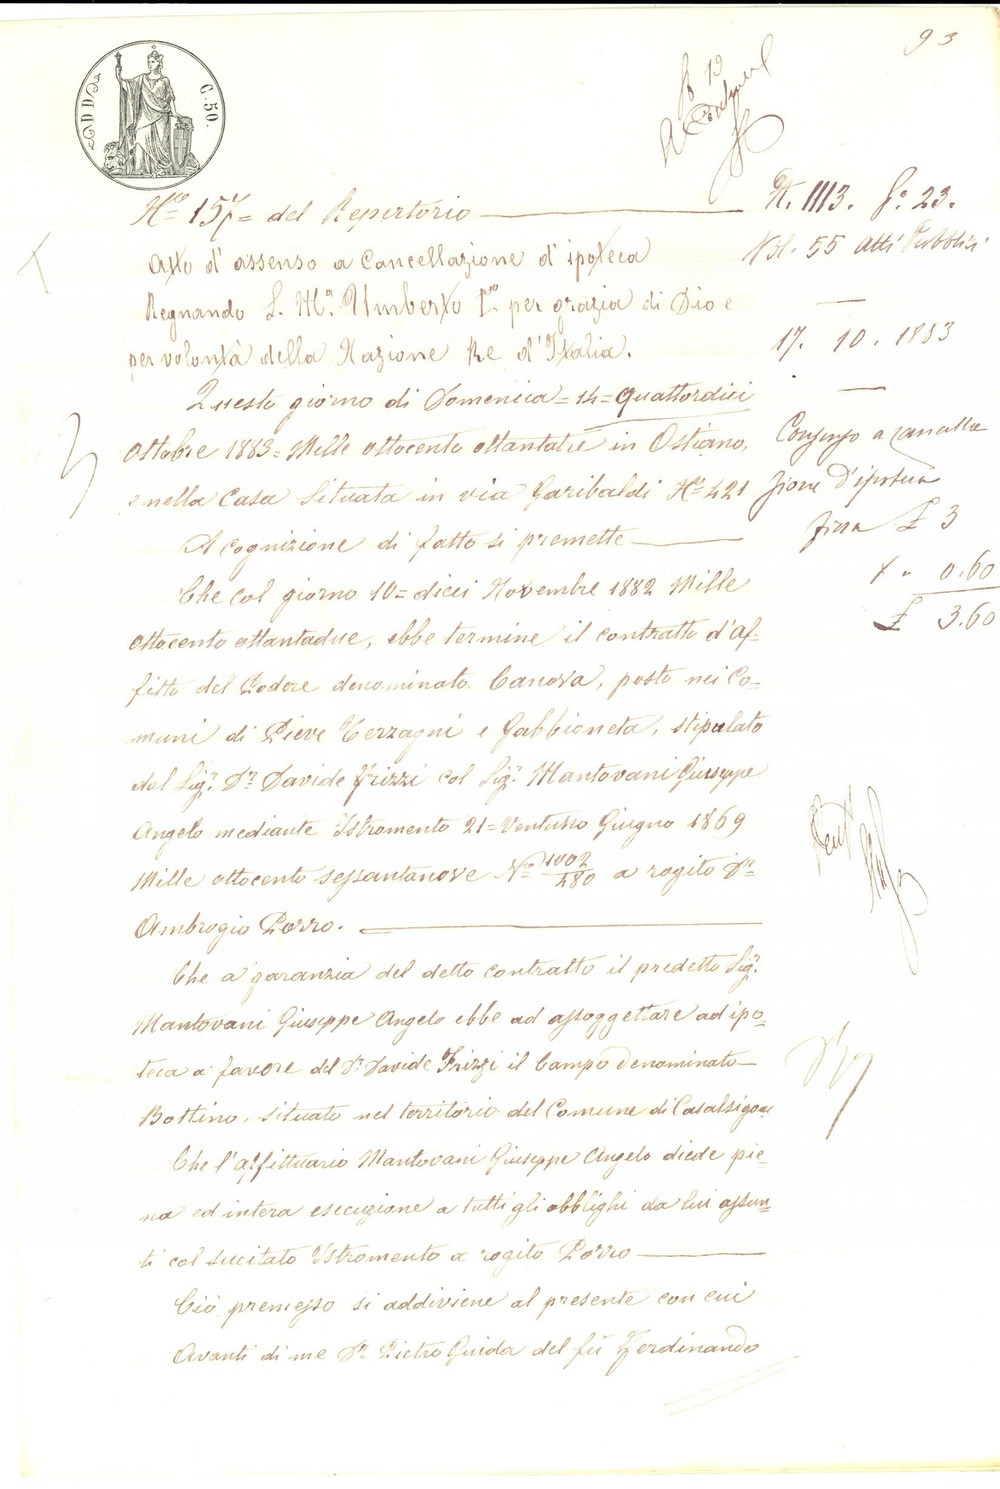 93
C. 50.
Nº 157 = del Repertorio
N. 1113. Fº 23.
Atto d'assenso a Cancellazione d'ipoteca
Vol. 55 Atti Pubblici
Regnando S. Mª. Umberto Iº per grazia di Dio e
per volontà della Nazione Re d'Italia.
17. 10. 1883
Questo giorno di Domenica = 14 = quattordici
Ottobre 1883 = Mille ottocento ottantatre in Ostiano,
Consenso a cancella
e nella Casa situata in via Garibaldi Nº 421
zione d'ipoteca
A cognizione di fatto si premette
fissa £ 3
Che col giorno 10 = dieci Novembre 1882 Mille
0.60
ottocento ottantadue, ebbe termine il contratto d'af-
£ 3.60
fitto del Podere denominato Canova, posto nei Co-
muni di Pieve Terzagni e Gabbioneta, stipulato
dal Sigr. Dr Davide Frizzi col Sigr. Mantovani Giuseppe
Angelo mediante Istromento 21 = Ventuno Giugno 1869
Mille ottocento sessantanove Nº 1002/480 a rogito Dr
Ambrogio Porro.
Che a garanzia del detto contratto il predetto Sigr.
Mantovani Giuseppe Angelo ebbe ad assoggettare ad ipo-
teca a favore del Dr Davide Frizzi il Campo denominato
Bottino, situato nel territorio del Comune di Casalsigone
Che l'affittuario Mantovani Giuseppe Angelo diede pie-
na ed intera esecuzione a tutti gli obblighi da lui assun-
ti col succitato Istromento a rogito Porro
Ciò premesso si addiviene al presente con cui
Avanti di me Dr Pietro Guida del fu Ferdinando